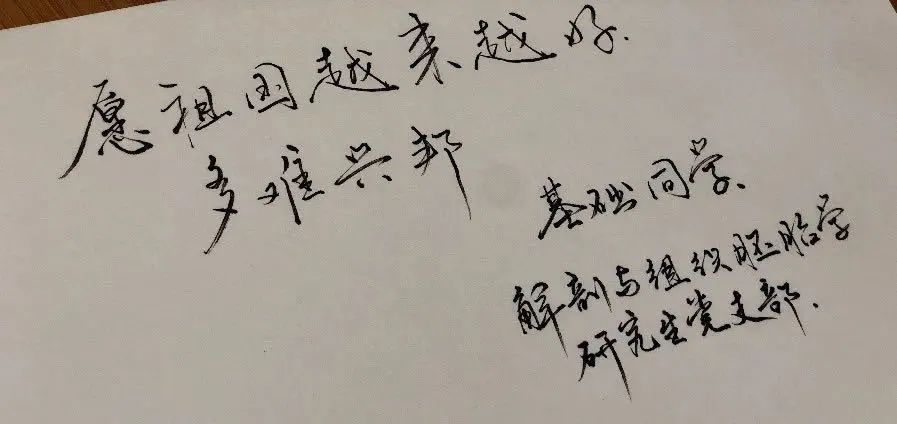 愿祖国越来越好.
多难兴邦
基础同学.
解剖与组织胚胎学
研究生党支部.